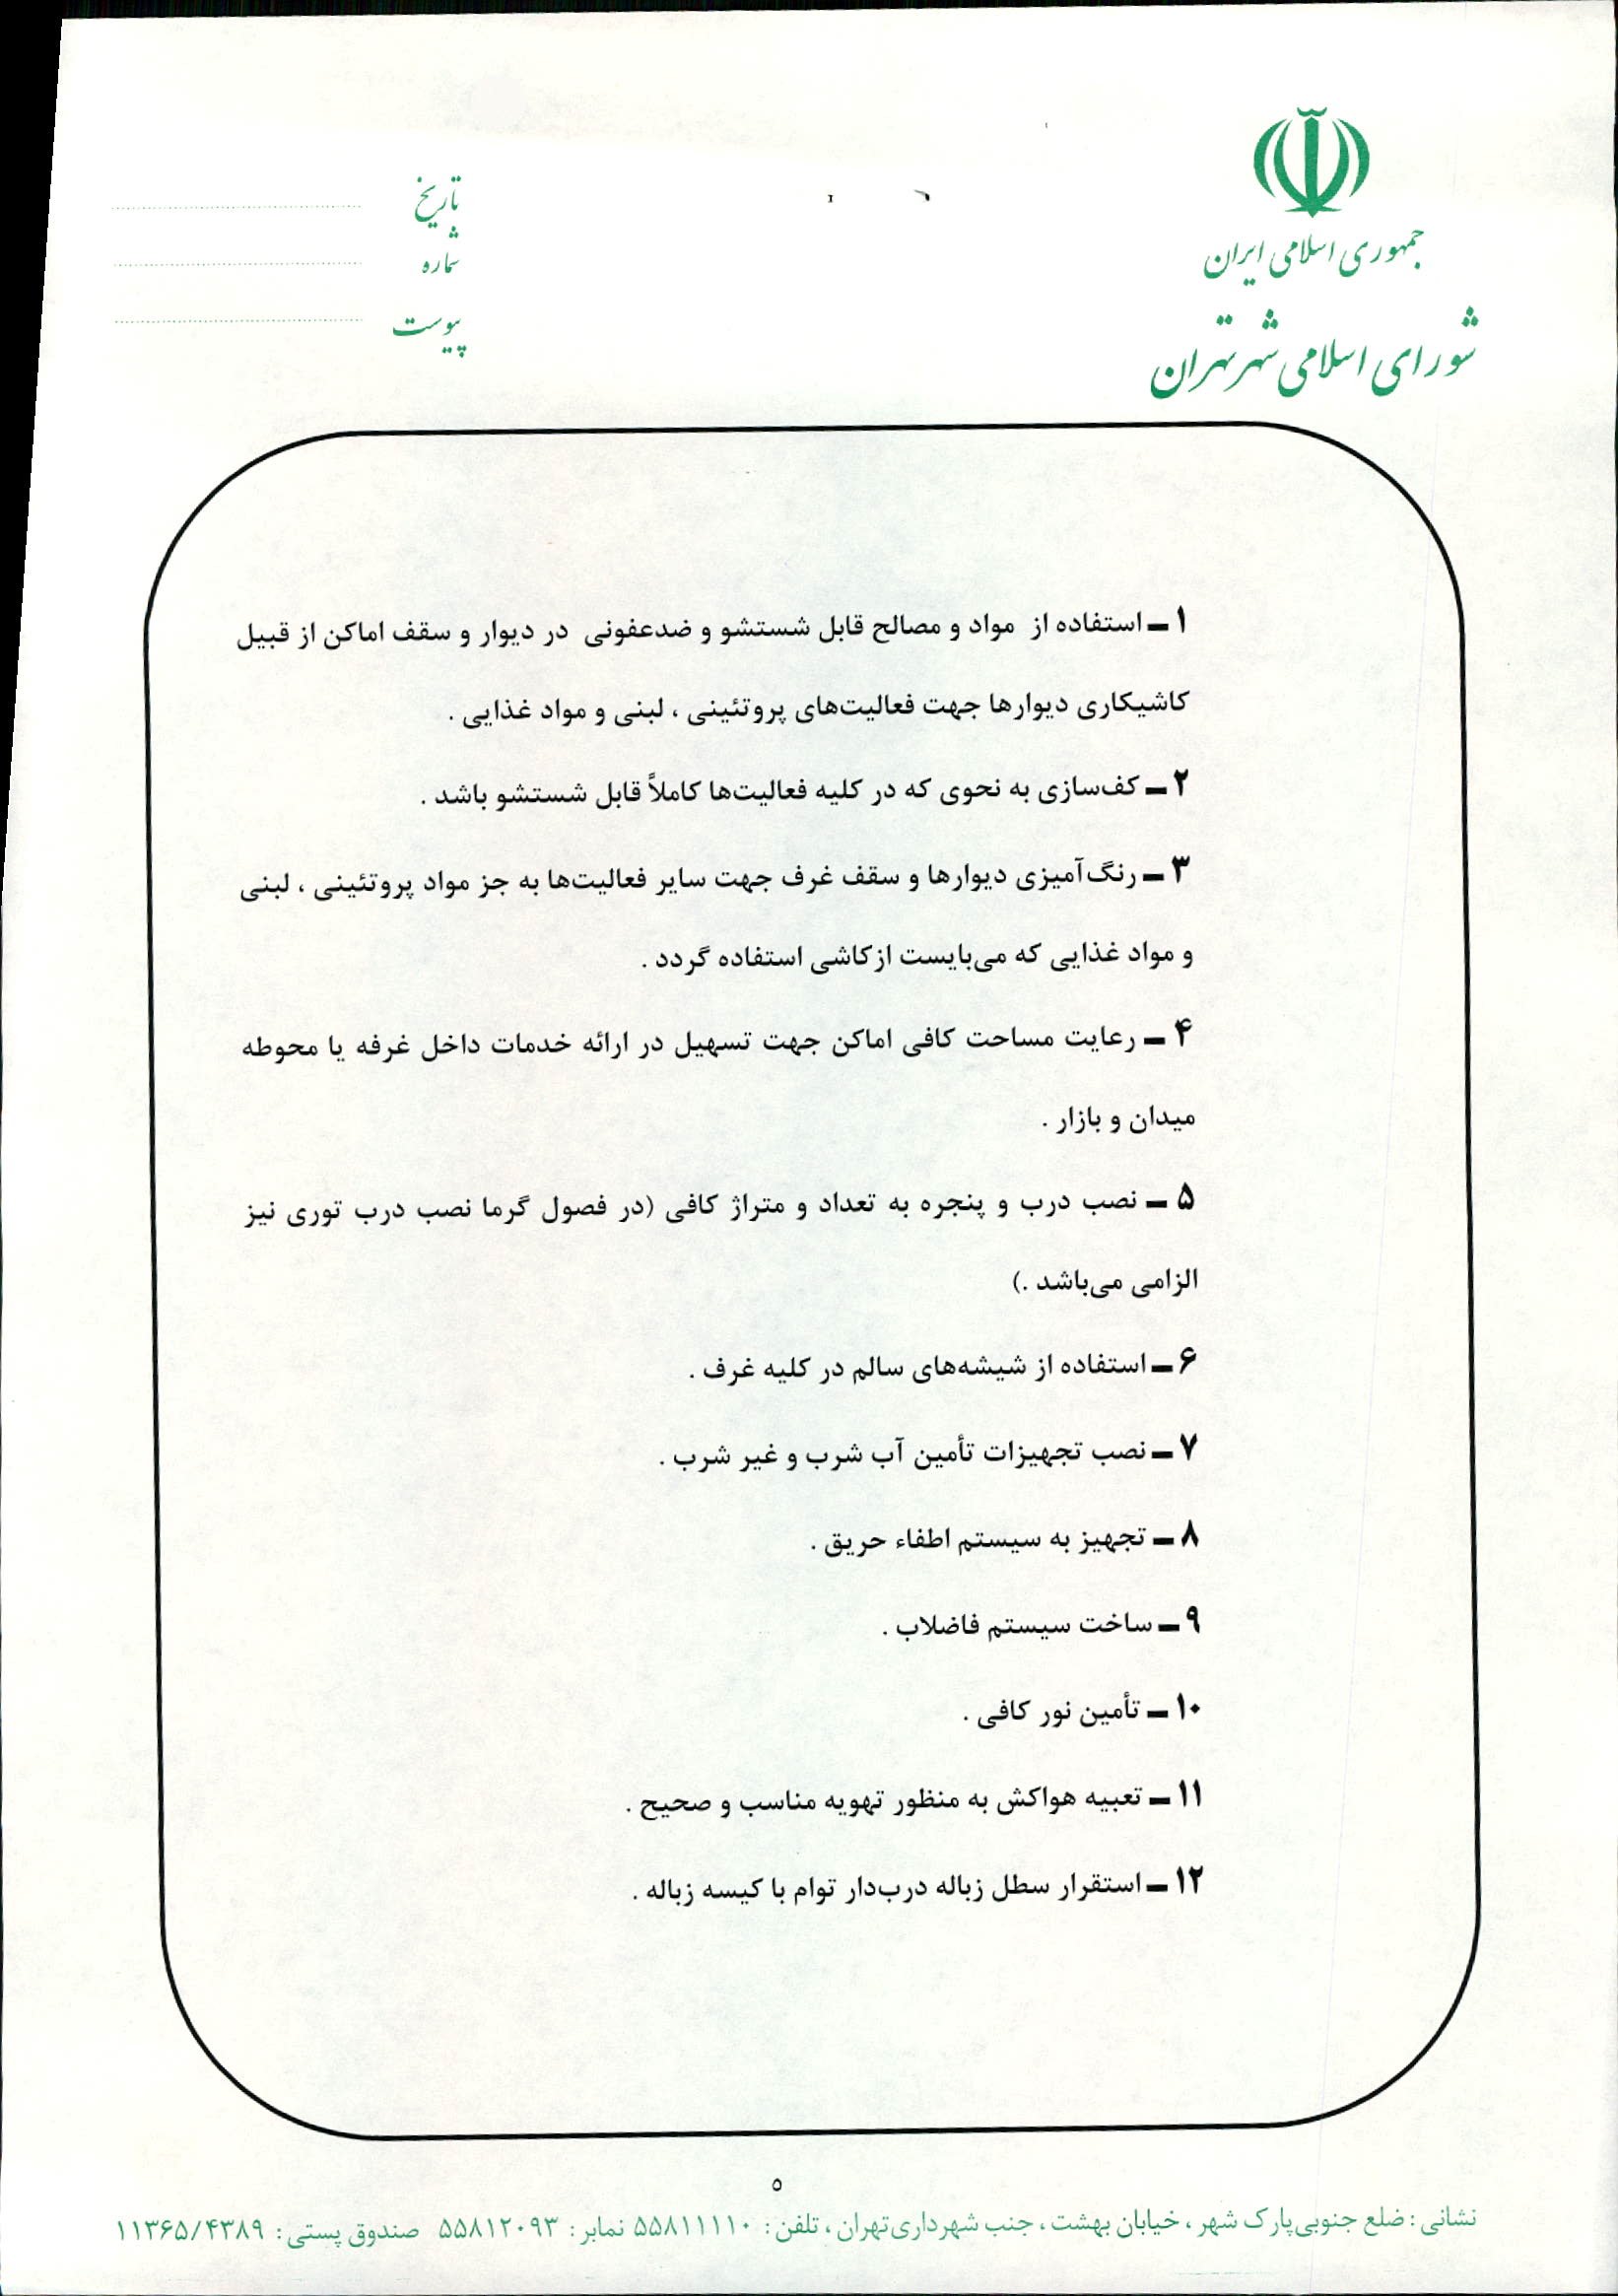 جمهوری اسلامی ایران
شورای اسلامی شهر تهران
تاریخ
شماره
پیوست
۱ ـ استفاده از مواد و مصالح قابل شستشو و ضدعفونی در دیوار و سقف اماکن از قبیل
کاشیکاری دیوارها جهت فعالیت‌های پروتئینی ، لبنی و مواد غذایی .
۲ ـ کف‌سازی به نحوی که در کلیه فعالیت‌ها کاملاً قابل شستشو باشد .
۳ ـ رنگ‌آمیزی دیوارها و سقف غرف جهت سایر فعالیت‌ها به جز مواد پروتئینی ، لبنی
و مواد غذایی که می‌بایست از کاشی استفاده گردد .
۴ ـ رعایت مساحت کافی اماکن جهت تسهیل در ارائه خدمات داخل غرفه یا محوطه
میدان و بازار .
۵ ـ نصب درب و پنجره به تعداد و متراژ کافی (در فصول گرما نصب درب توری نیز
الزامی می‌باشد .)
۶ ـ استفاده از شیشه‌های سالم در کلیه غرف .
۷ ـ نصب تجهیزات تأمین آب شرب و غیر شرب .
۸ ـ تجهیز به سیستم اطفاء حریق .
۹ ـ ساخت سیستم فاضلاب .
۱۰ ـ تأمین نور کافی .
۱۱ ـ تعبیه هواکش به منظور تهویه مناسب و صحیح .
۱۲ ـ استقرار سطل زباله درب‌دار توام با کیسه زباله .
۵
نشانی : ضلع جنوبی پارک شهر ، خیابان بهشت ، جنب شهرداری تهران ، تلفن : ۵۵۸۱۱۱۱۰ نمابر : ۵۵۸۱۲۰۹۳ صندوق پستی : ۱۱۳۶۵/۴۳۸۹